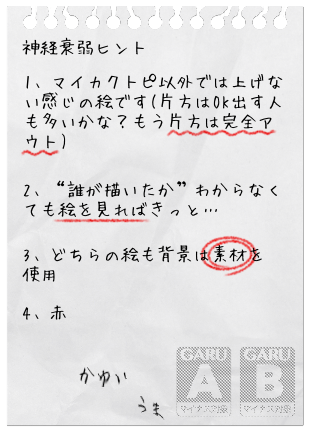 神経衰弱ヒント
1、マイカクトピ以外では上げな
い感じの絵です(片方はOK出す人
も多いかな?もう片方は完全ア
ウト)
2、“誰が描いたか”わからなく
ても絵を見ればきっと…
3、どちらの絵も背景は素材を
使用
4、赤
かゆい
うま
GARU GARU
A B
マイナス対象 マイナス対象